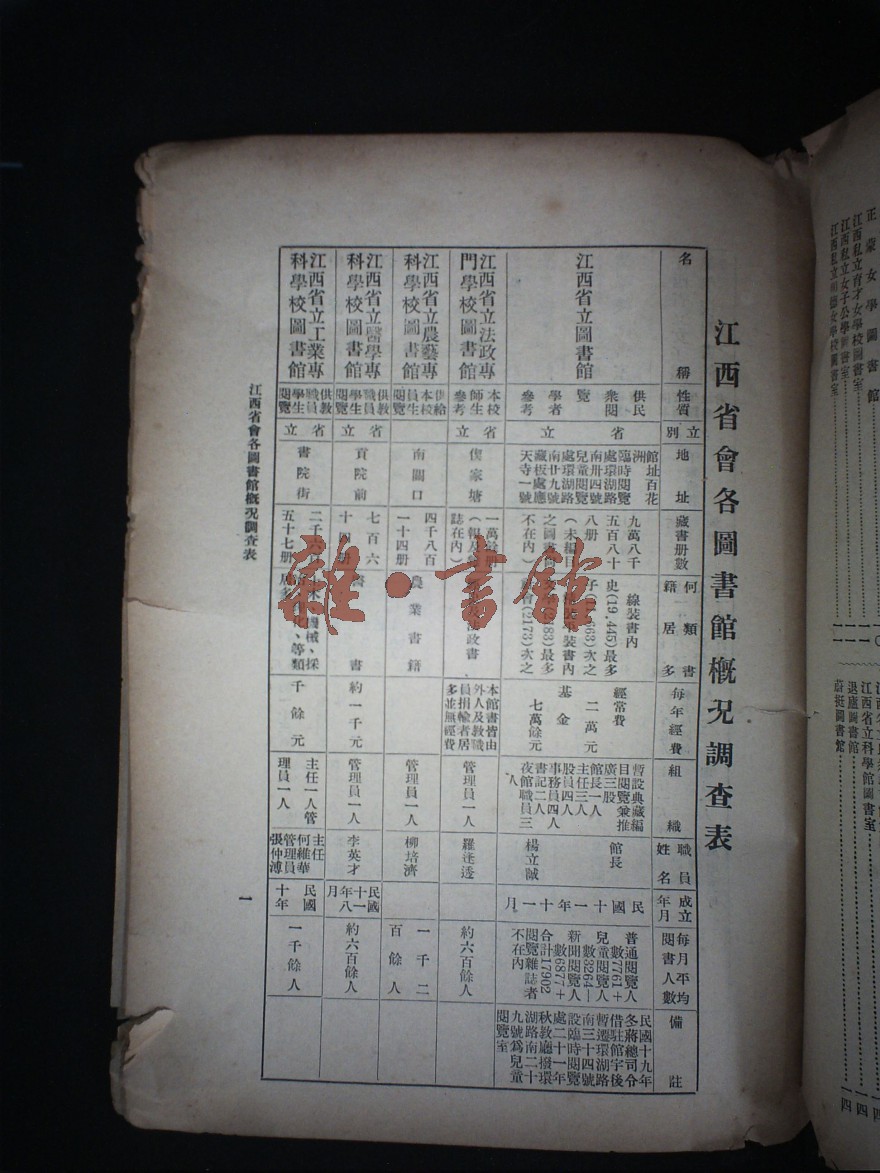 江西省會各圖書館概況調查表
名稱
性質
立別
地址
藏書册數
何類書籍居多
每年經費
組織
職員姓名
成立年月
每月平均閱書人數
備註
江西省立圖書館
供民衆閱覽
學者參考
省立
館址百花洲
臨時閱覽處環湖路南卅四號
兒童閱覽處環湖路南廿九號
藏板處應天寺一號
九萬八千五百八十八册
(未編目之圖書
不在內)
線裝書內
史(19,445)最多
子
裝書內
最多
(2173)次之
經常費
二萬元
基金
七萬餘元
暫設典藏編目閱覽兼推廣三股
館長一人
主任三人
股員四人
事務員四人
書記二人
夜館職員三人
館長
楊立誠
民國十一年十一月
普通閱覽人數7761+
兒童閱覽人數3264—
新聞閱覽人數6877+
合計17902
閱覽雜誌者不在內
民國十九年冬蔣總司令借駐館宇後暫遷環湖路南三十四號設臨時閱覽處二十一年秋教廳撥環湖路南二十九號爲兒童閱覽室
江西省立法政專門學校圖書館
本校師生參考
省立
傻家塘
一萬餘册
(報及雜誌在內)
法政書
本館書皆由外人及教職員捐輸者居多並無經費
管理員一人
羅蓬透
約六百餘人
江西省立農藝專科學校圖書館
供給本校員生閱覽
南關口
四千八百一十四册
農業書籍
管理員一人
柳培濟
一千二百餘人
江西省立醫學專科學校圖書館
供教職員學生閱覽
省立
貢院前
七百六十四册
醫書
約一千元
管理員一人
李英才
民國十一年八月
約六百餘人
江西省立工業專科學校圖書館
供教職員學生閱覽
省立
書院街
二千六百五十七册
土木、機械、採
化、等類
居多
千餘元
主任一人管理員一人
主任
何維華
管理員
張仲溥
民國十年
一千餘人
江西省會各圖書館概況調查表
一
雜·書館
正蒙女學圖書館
江西私立育才女學校圖書室
江西私立女子公學圖書室
江西私立明德女學校圖書室
江西省立科學館圖書室
退廬圖書館
蔚挺圖書館